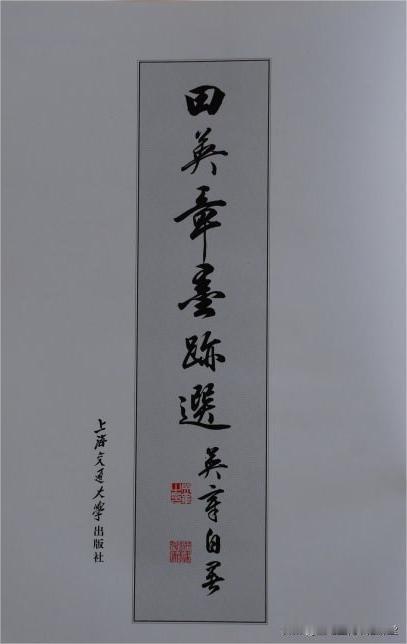 田英章墨跡選
英章自署
上海交通大學出版社